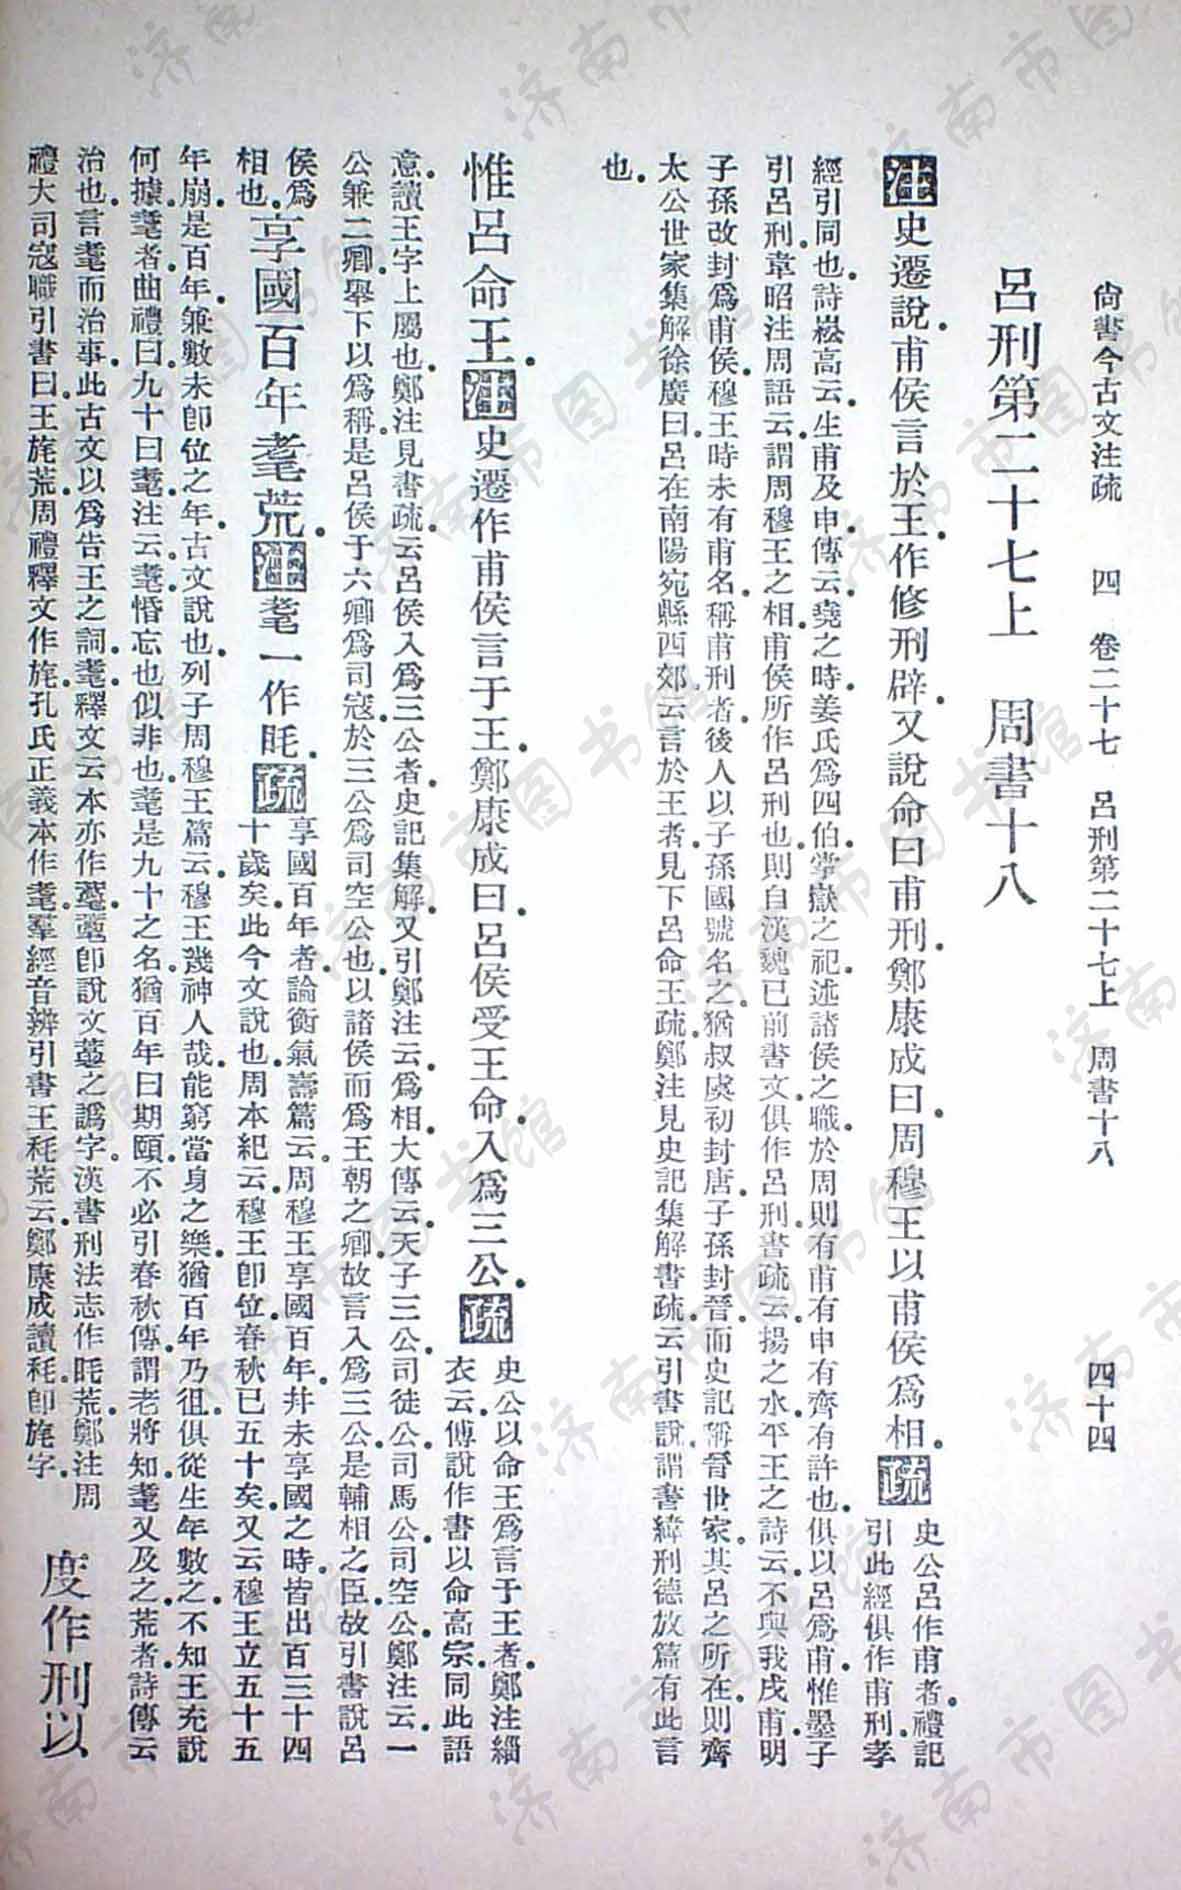 尙書今古文注疏　四　卷二十七　呂刑第二十七上　周書十八　四十四
呂刑第二十七上　周書十八
注史遷說甫侯言於王作修刑辟又說命曰甫刑鄭康成曰周穆王以甫侯爲相疏史公呂作甫者禮記
引此經俱作甫刑孝
經引同也詩崧高云生甫及申傳云堯之時姜氏爲四伯掌嶽之祀述諸侯之職於周則有甫有申有齊有許也俱以呂爲甫惟墨子
引呂刑韋昭注周語云謂周穆王之相甫侯所作呂刑也則自漢魏已前書文俱作呂刑書疏云揚之水平王之詩云不與我戍甫明
子孫改封爲甫侯穆王時未有甫名稱甫刑者後人以子孫國號名之猶叔虞初封唐子孫封晉而史記稱晉世家其呂之所在則齊
太公世家集解徐廣曰呂在南陽宛縣西郊云言於王者見下呂命王疏鄭注見史記集解書疏云引書說謂書緯刑德放篇有此言
也
惟呂命王注史遷作甫侯言于王鄭康成曰呂侯受王命入爲三公疏史公以命王爲言于王者鄭注緇
衣云傅說作書以命高宗同此語
意讀王字上屬也鄭注見書疏云呂侯入爲三公者史記集解又引鄭注云爲相大傳云天子三公司徒公司馬公司空公鄭注云一
公兼二卿舉下以爲稱是呂侯于六卿爲司寇於三公爲司空公也以諸侯而爲王朝之卿故言入爲三公是輔相之臣故引書說呂
侯爲
相也享國百年耄荒注耄一作眊疏享國百年者論衡氣壽篇云周穆王享國百年幷未享國之時皆出百三十四
十歲矣此今文說也周本紀云穆王卽位春秋已五十矣又云穆王立五十五
年崩是百年兼數未卽位之年古文說也列子周穆王篇云穆王幾神人哉能窮當身之樂猶百年乃徂俱從生年數之不知王充說
何據耄者曲禮曰九十曰耄注云耄惛忘也似非也耄是九十之名猶百年曰期頤不必引春秋傳謂老將知耄又及之荒者詩傳云
治也言耄而治事此古文以爲告王之詞耄釋文云本亦作薹薹卽說文薹之譌字漢書刑法志作眊荒鄭注周
禮大司寇職引書曰王旄荒周禮釋文作旄孔氏正義本作耄羣經音辨引書王秏荒云鄭康成讀秏卽旄字度作刑以